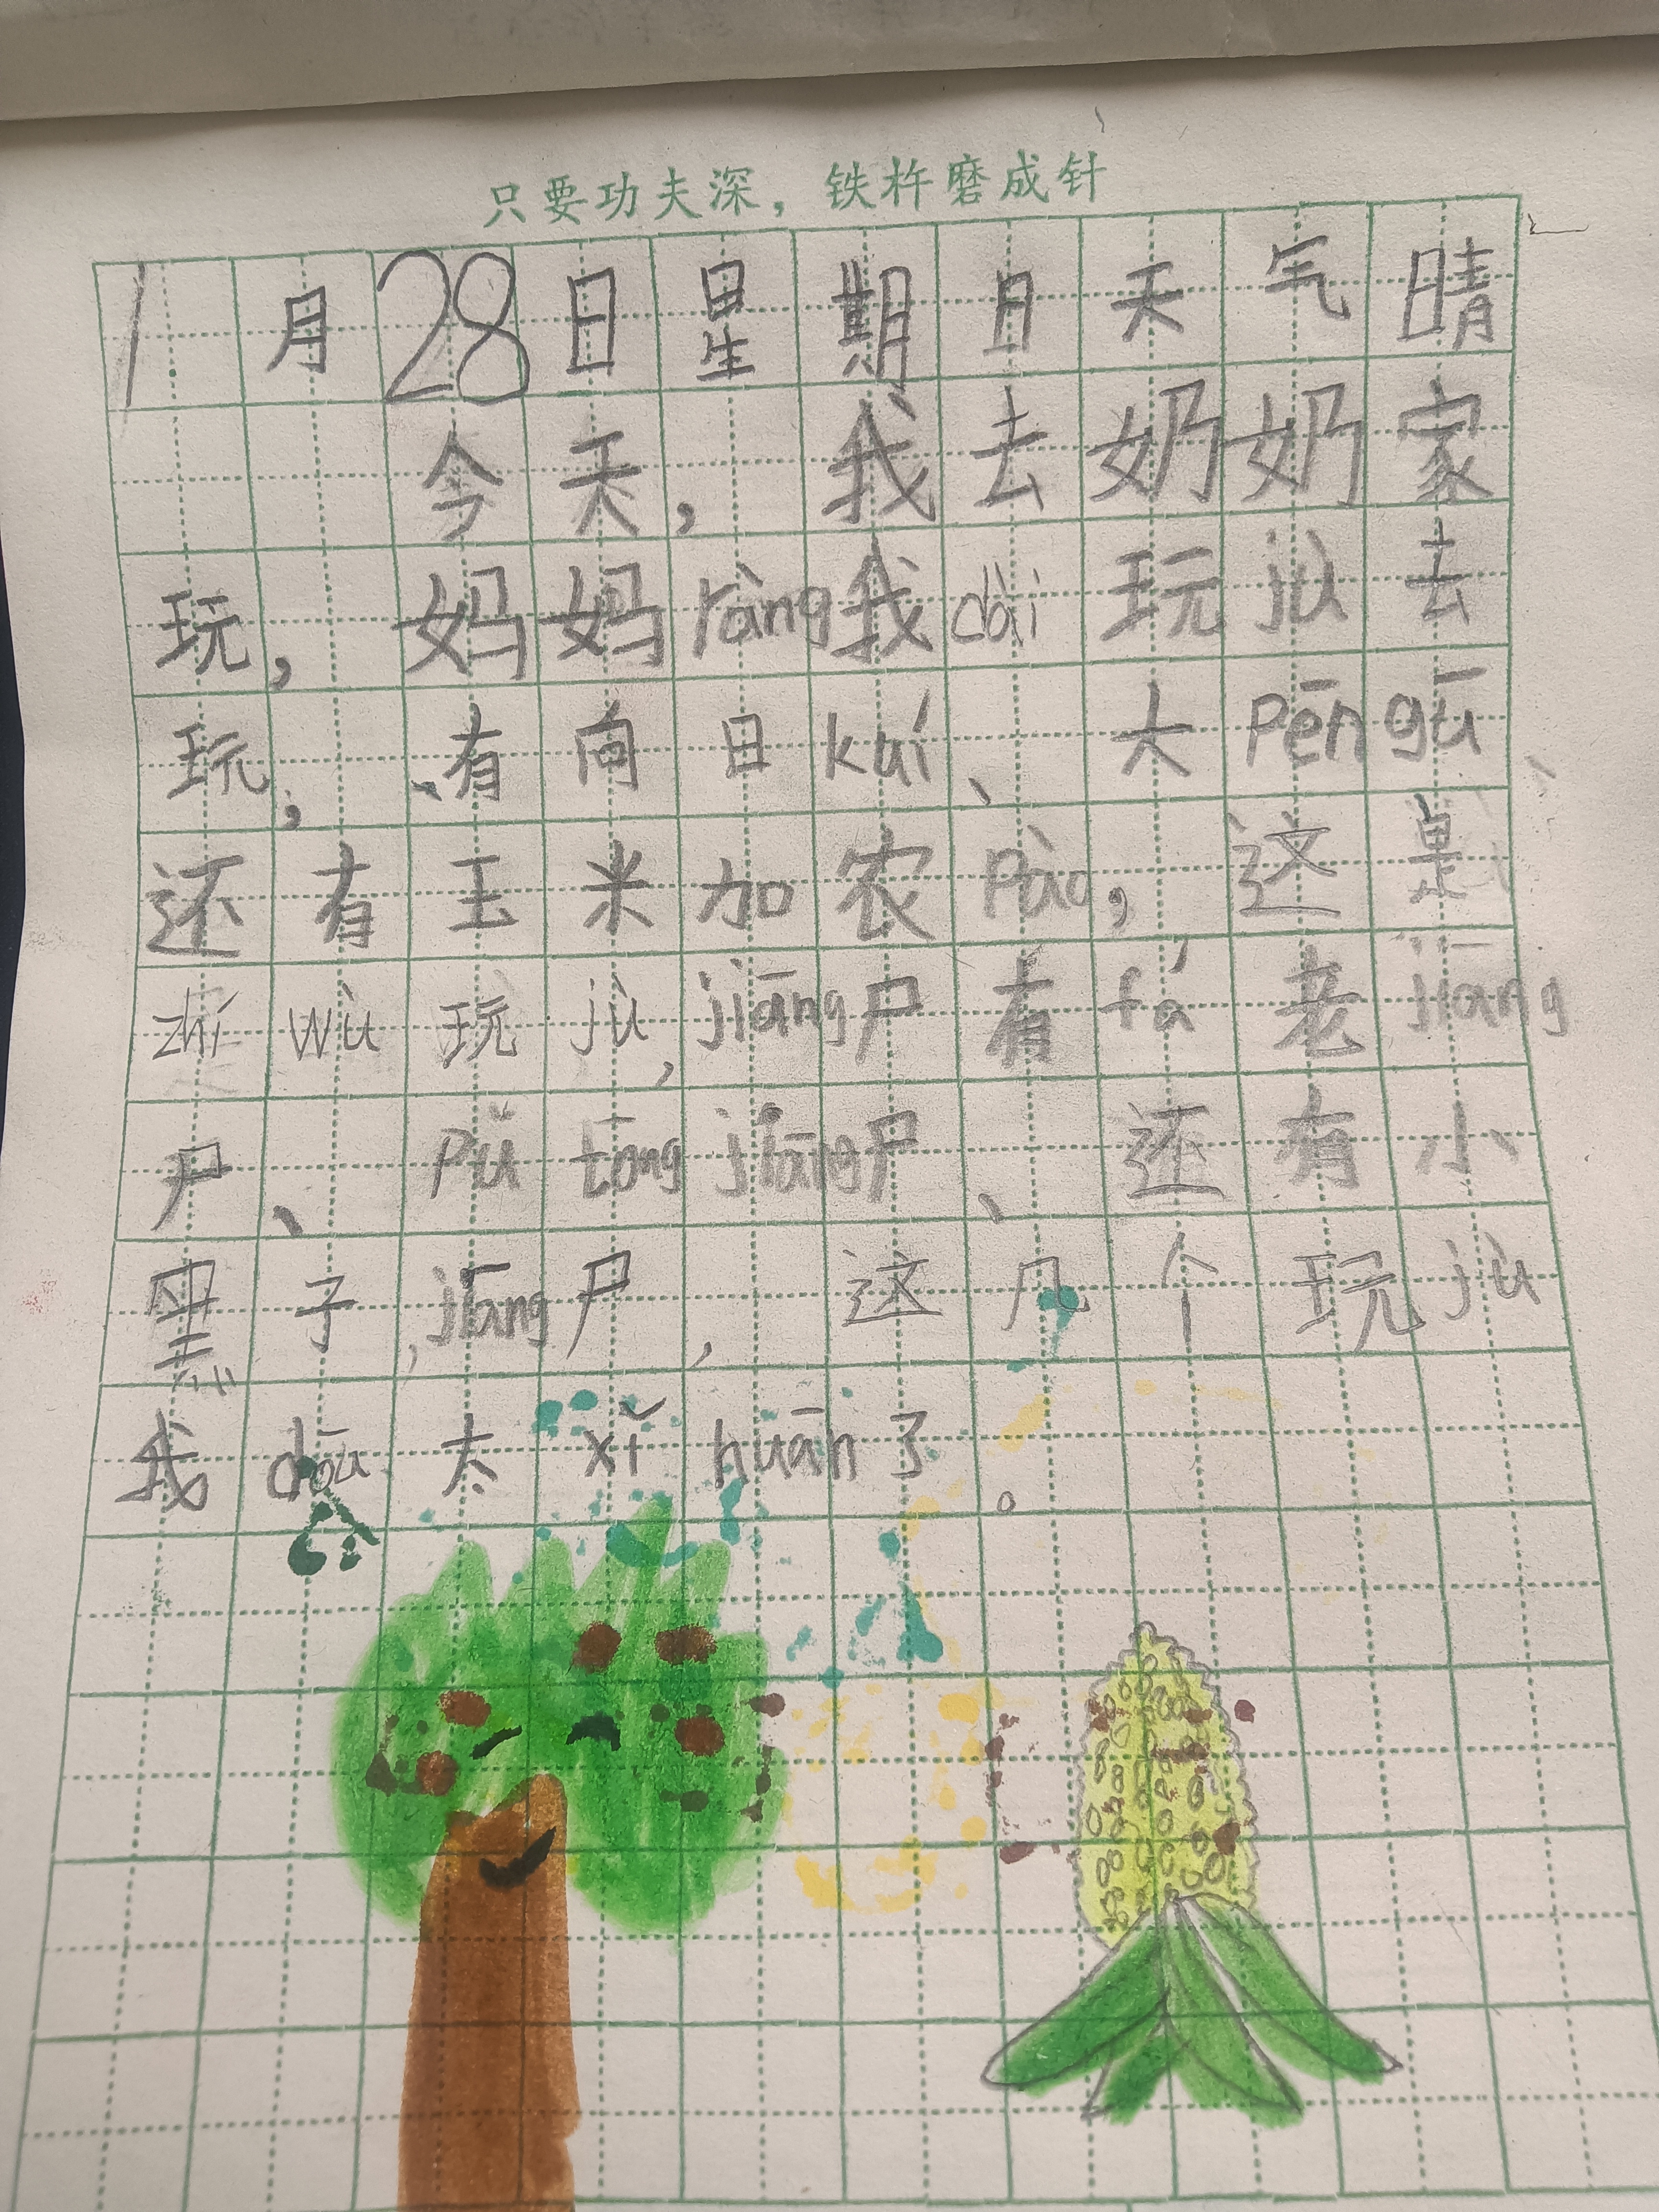 只要功夫深，铁杵磨成针
1月28日星期日天气晴
今天，我去奶奶家
玩，妈妈ràng我dài玩jù去
玩，有向日kuí、大Pēngū、
还有玉米加农Pào，这是
zhí wù玩jù，jiāng尸有fá老jiāng
尸、Pǔ tōng jiāng尸、还有小
黑子jiāng尸，这几个玩jù
我dōu太xǐ huān了。